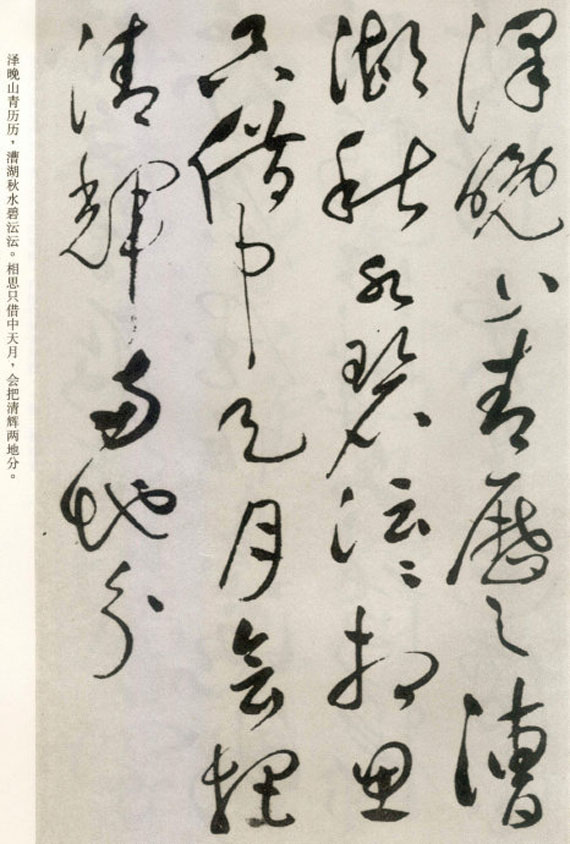 澤晚山青歷〻漕
湖秋水碧沄〻相思
只借中天月會把
清輝兩地分
泽晚山青历历，漕湖秋水碧沄沄。相思只借中天月，会把清辉两地分。